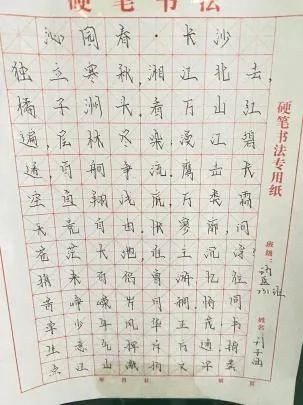 硬笔书法
沁园春·长沙
独立寒秋,湘江北去,
橘子洲头,看万山红
遍,层林尽染,漫江碧
透,百舸争流,鹰击长
空,鱼翔浅底,万类霜
天竞自由,怅寥廓,问
苍茫大地,谁主沉浮?
携来百侣曾游忆往
昔峥嵘岁月稠,恰同
学少年风华正茂,书
生意气挥斥方遒
点江山
硬笔书法专用纸
班级:
姓名: